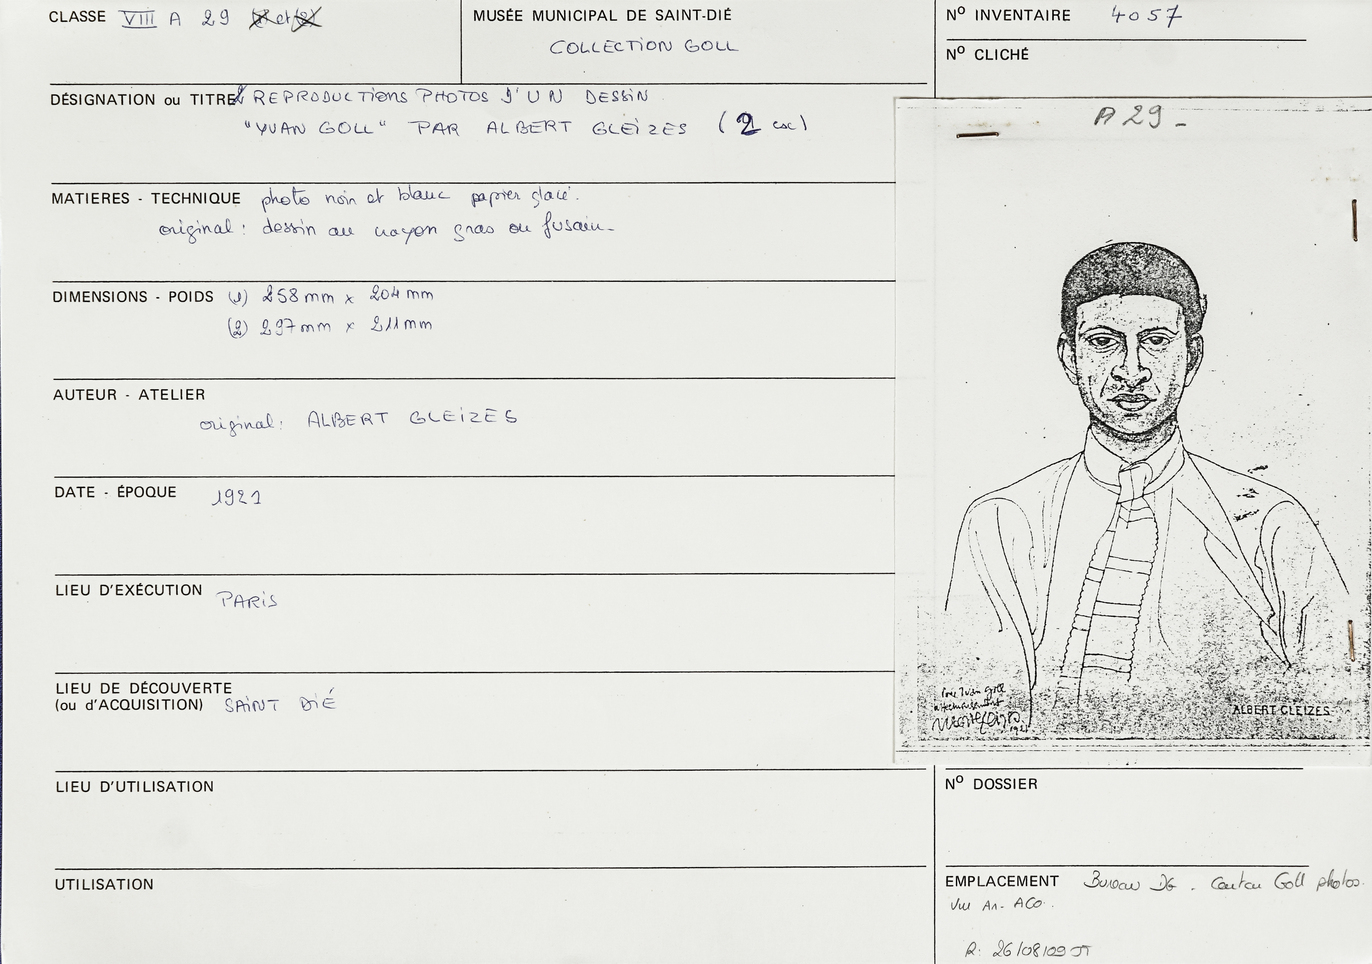 CLASSE VIII A 29
MUSÉE MUNICIPAL DE SAINT-DIÉ
COLLECTION GOLL
Nº INVENTAIRE 4057
Nº CLICHÉ
DÉSIGNATION ou TITRE REPRODUCTIONS PHOTOS D'UN DESSIN
"YVAN GOLL" PAR ALBERT GLEIZES (2 ex)
MATIERES - TECHNIQUE photo noir et blanc papier glacé.
original: dessin au crayon gras ou fusain
DIMENSIONS - POIDS (1) 258 mm x 204 mm
(2) 297 mm x 211 mm
AUTEUR - ATELIER
original: ALBERT GLEIZES
DATE - ÉPOQUE 1921
LIEU D'EXÉCUTION PARIS
LIEU DE DÉCOUVERTE
(ou d'ACQUISITION) SAINT DIÉ
LIEU D'UTILISATION
UTILISATION
A 29 -
Pour Ivan Goll
1921
ALBERT GLEIZES
Nº DOSSIER
EMPLACEMENT Bureau DG. Carton Goll photos.
Vu An. ACo.
R: 26/08/09 JT